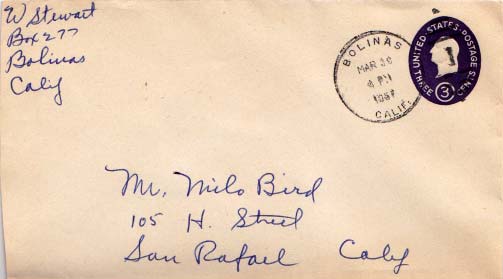 W Stewart
Box 277
Bolinas
Calif
BOLINAS
MAR
PM
CALIF.
UNITED·STATES·POSTAGE
THREE 3 CENTS
Mr. Milo Bird
105 H. Street
San Rafael Calif